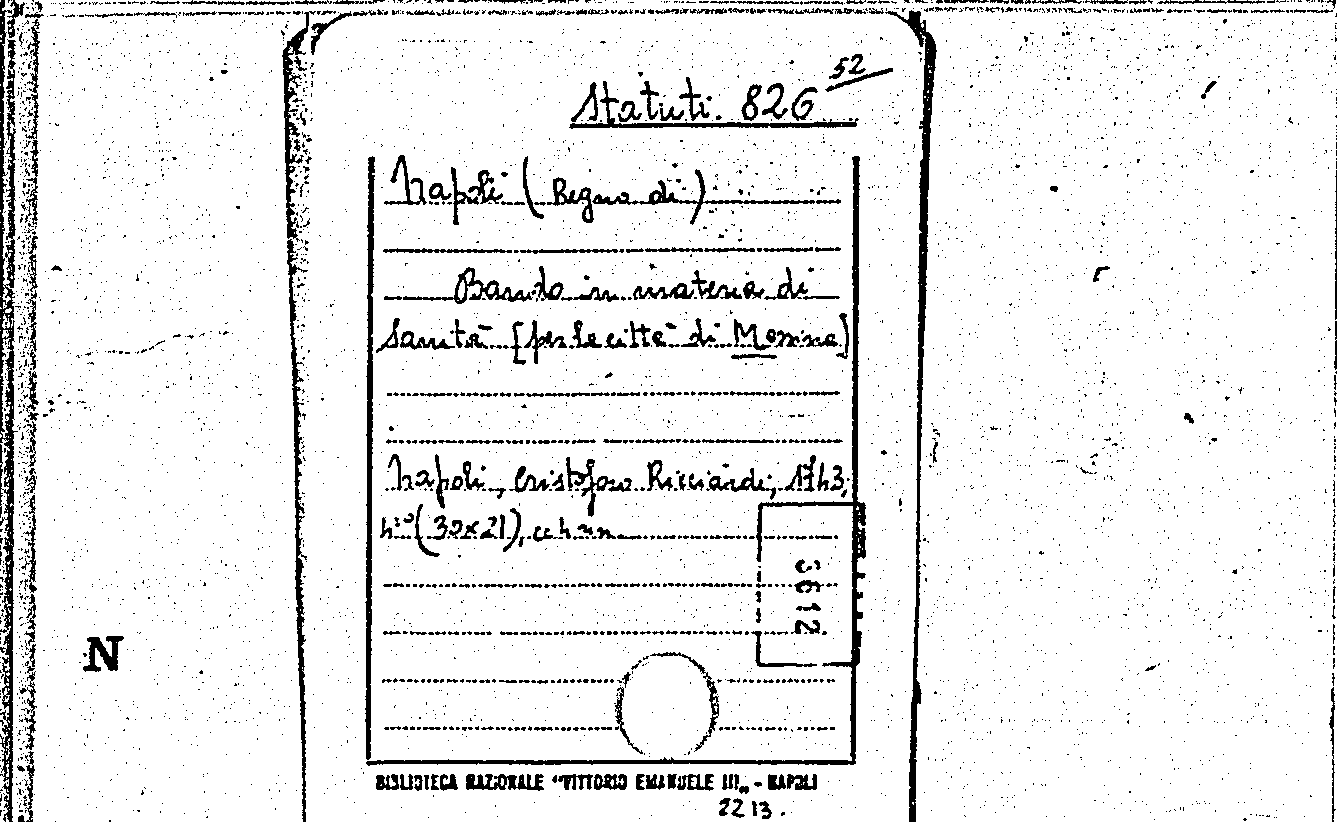 52
Statuti. 826
Napoli (Regno di)
Bando in materia di
sanità [per la città di Messina]
Napoli, Cristoforo Ricciardi, 1743,
(30x21),
3612
N
BIBLIOTECA NAZIONALE "VITTORIO EMANUELE III„ - NAPOLI
2213.